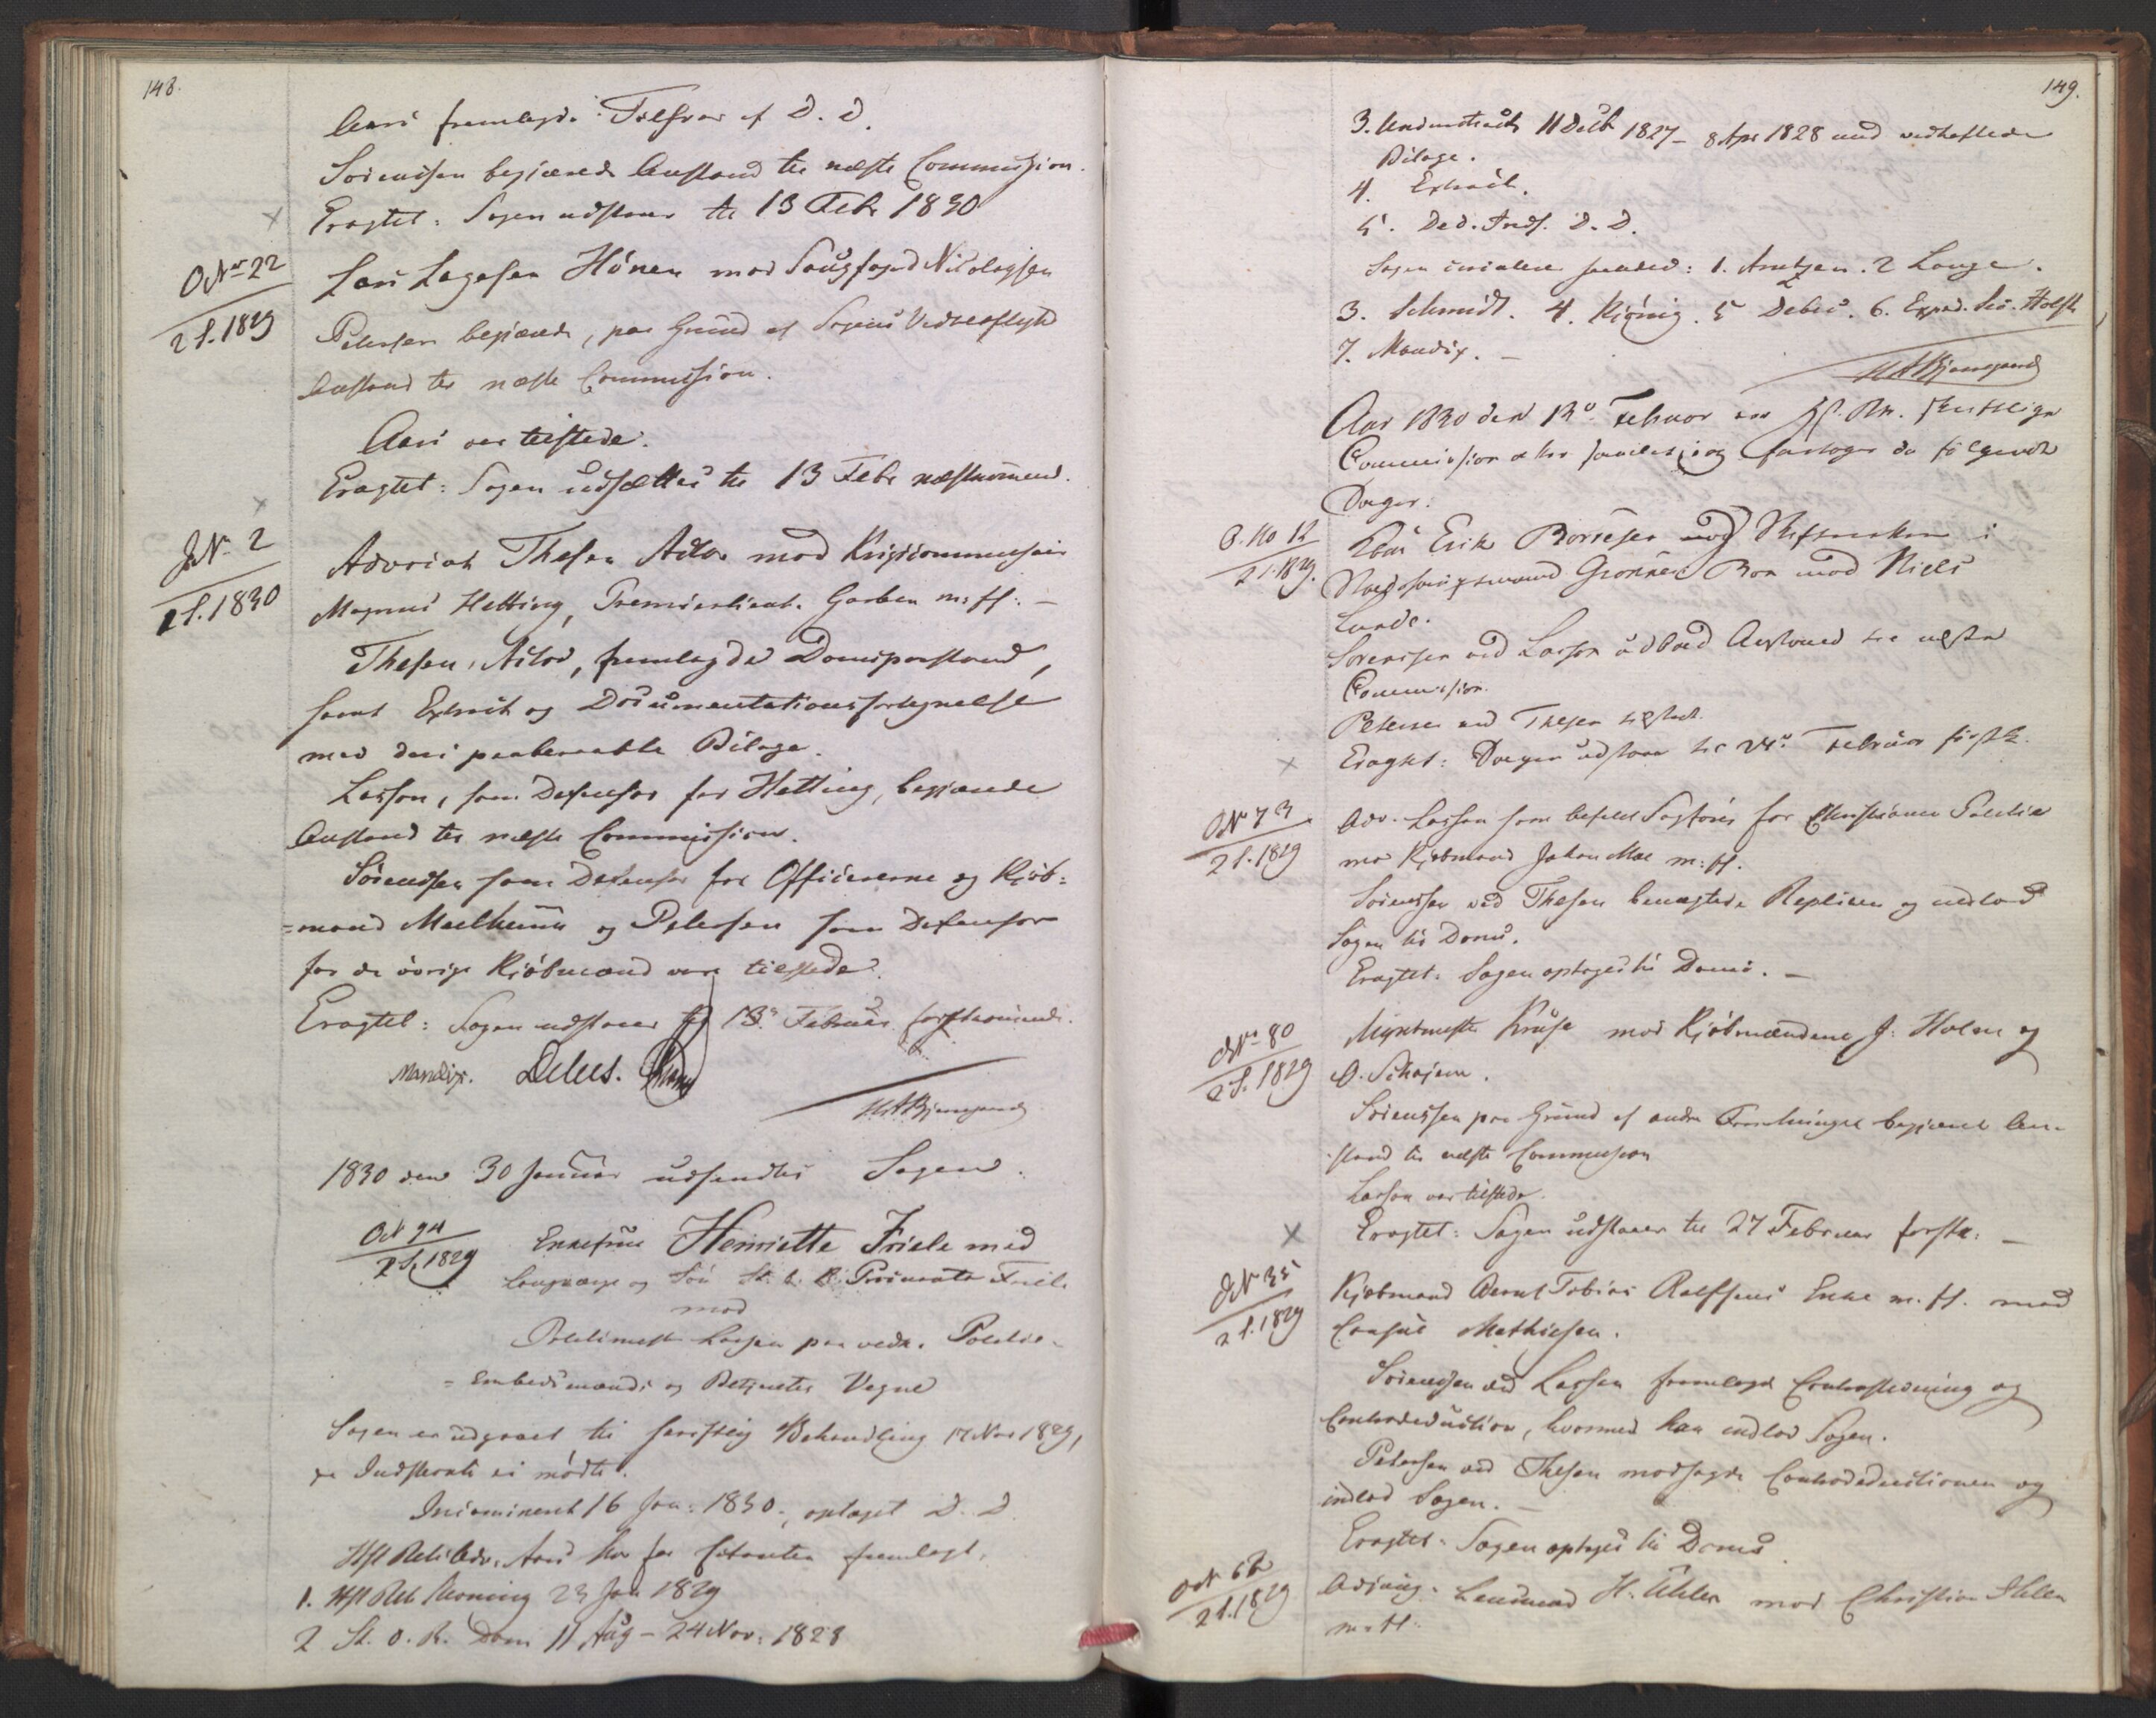 148.
Aars fremlagde Tilsvar af D. D.
Sörensen begjærede Anstand til næste Commission.
Eragtet: Sagen udstaaer til 13 Febr 1830
O № 22
2 S. 1829
Lars Lagesen Hönen mod Nikolaysen
Petersen begjærede, paa Grund af Sagens Vidtløftighed
Anstand til næste Commission.
Aars var tilstede.
Eragtet: Sagen udsættes til 13 Febr næstkommend.
J № 2
1 S. 1830
Advocat Thesen Actor mod Krigscommissair
Magnus Hetting, Premierlieut. Garben m: fl: —
Thesen, Actor, fremlagde
samt Extract og Documentationsfortegnelse
med deri paaberaabte Bilage.
Lasson, som Defensor for Hetting, begjærede
Anstand til næste Commission.
Sörensen som Defensor for Officererne og Kjöb-
=mand Maelhuun og Petersen som Defensor
for de övrige Kjöbmænd vare tilstede.
Eragtet: Sagen udstaaer til 13de Februar førstkommende.
Mandix. Debes.
HABjerregaard
1830 den 30 Januar udsendtes Sagen.
O № 94
2 S. 1829
Enkefrue Henriette Friele med
Laugværge og Sön St. O. R. Procurator Friele
mod
Politimester Larsen paa vedk. Politie-
=Embedsmands og Rettens Vegne
Sagen er udgaaet til skriftlig Behandling 17 Nov 1829,
da Indstevnte ei mödte.
Incamineret 16 Jan: 1830, optaget D. D.
Aars har for Citanten fremlagt.
1. Hst Ret Stevning 23 Jan 1829
2 St. O. R. Dom 11 Aug – 24 Nov: 1828
149.
3. Underretsact 11 Decbr 1827 – 8 Apr 1828 med vedheftede
Bilage.
4. Extract.
5. Ded. Inds. D. D.
Sagen saaledes: 1. Arntzen. 2 Lange.
3. Schmidt. 4. Kiönig. 5 Debes. 6. Holst
7. Mandix. —
HABjerregaard
Aar 1830 den 13de Februar var skriftlige
Commission atter samlet og foretoges da følgende
Sager:
O. No 12
2 S. 1829.
Lars Erik Borresen mod i
Grönnes Boe mod Niels
Lunde.
Sorensen ved Lasson udbad Anstand til næste
Commission.
Petersen ved Thesen tilstede.
Eragtet: Sagen udstaaer til 27de Februar förstk.
O № 73
2 S. 1829
Adv. Lasson som befalet Sagförer for Christiania Politie
mod Kjöbmand Johan Moe m: fl.
Sörensen ved Thesen benægtede Repliken og indlod
Sagen til Doms.
Eragtet: Sagen optages til Doms. —
O № 80
2 S. 1829
Myntmester Kruse mod Kjöbmændene J. Holm og
O. Schøjen.
Sörenssen paa Grund af andre Forretninger begjærede An-
stand til næste Commission
Lasson var tilstede.
Eragtet: Sagen udstaaer til 27 Februar førstk: —
O № 35
2 S. 1829
Kjøbmand Bernt Tobias Rolffsens Enke m. fl. mod
Consul Mathiesen.
Sörensen ved Lasson fremlagde Contrastevning og
Contradeduction, hvormed han indlod Sagen.
Petersen ved Thesen modsagde Contradeductionen og
indlod Sagen. —
Eragtet: Sagen optages til Doms.
O № 62
2 S. 1829
Adjung. Lensmand H. Uhlen mod Christian Ihlen
m: fl: